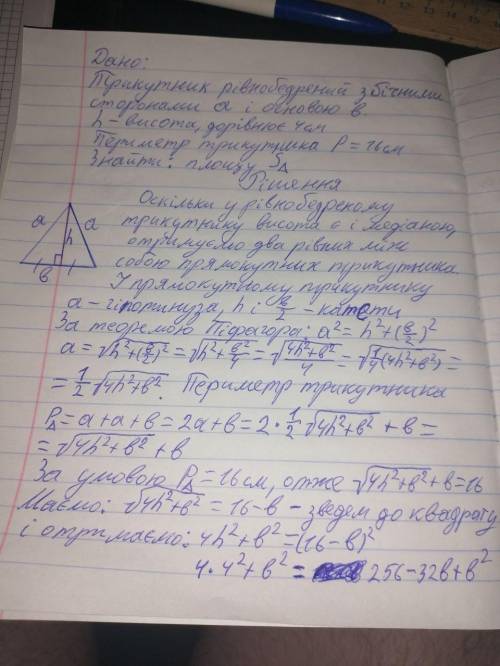 Дано:
Трикутник рівнобедрений з бічними
сторонами a і основою b.
h – висота, дорівнює 4см
Периметр трикутника P = 16см
Знайти: площу S△
Рішення
Оскільки у рівнобедреному
трикутнику висота є і медіаною,
отримуємо два рівних між
собою прямокутних трикутника
У прямокутному трикутнику
a a h b
a – гіпотинуза, h і b/2 – катети
За теоремою Піфагора: a² = h² + (b/2)²
a = √(h² + (b/2)²) = √(h² + b²/4) = √((4h² + b²)/4) = √(1/4(4h² + b²)) =
= 1/2 √(4h² + b²). Периметр трикутника
P△ = a + a + b = 2a + b = 2 · 1/2 √(4h² + b²) + b =
= √(4h² + b²) + b
За умовою P△ = 16см, отже √(4h² + b²) + b = 16
Маємо: √(4h² + b²) = 16 – b – зведем до квадрату
і отримаємо: 4h² + b² = (16 – b)²
4 · 4² + b² = 256 – 32b + b²